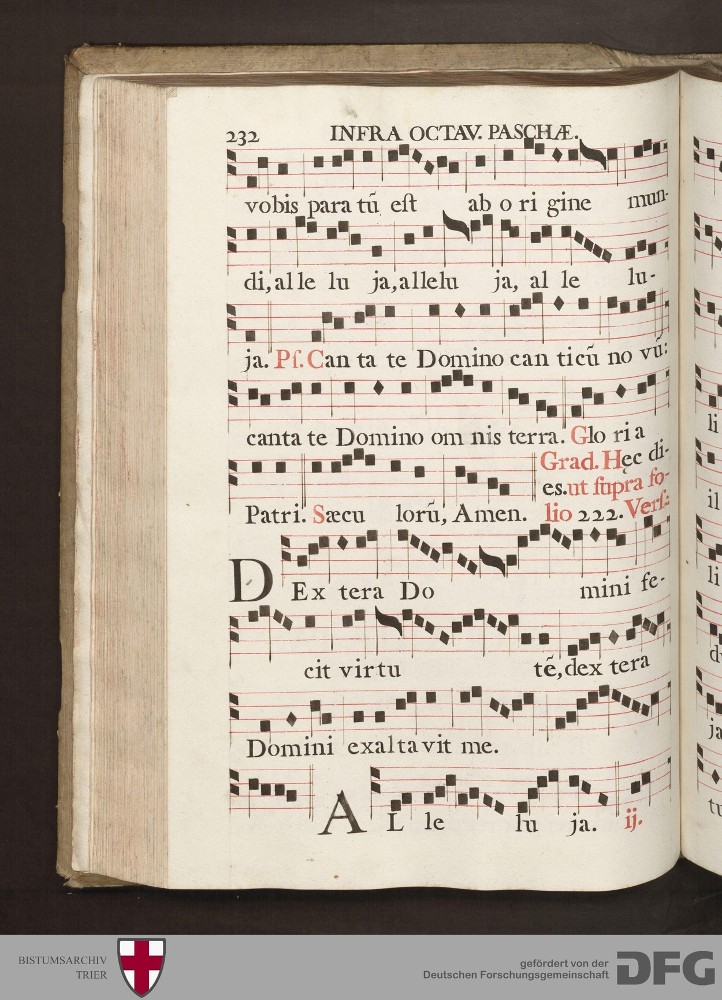 232 INFRA OCTAV. PASCHÆ.
vobis para tũ eſt ab o ri gine mun-
di, al le lu ja, allelu ja, al le lu-
ja. Pſ. Can ta te Domino can ticũ no vũ:
canta te Domino om nis terra. Glo ri a
Grad. Hęc di-
es. ut ſupra fo-
Patri. Sæcu lorũ, Amen. lio 222. Verſ:
DEx tera Do mini fe-
cit virtu tẽ, dex tera
Domini exaltavit me.
AL le lu ja. ij.
li
il
li
ja
BISTUMSARCHIV
TRIER
gefördert von der
Deutschen Forschungsgemeinschaft
DFG